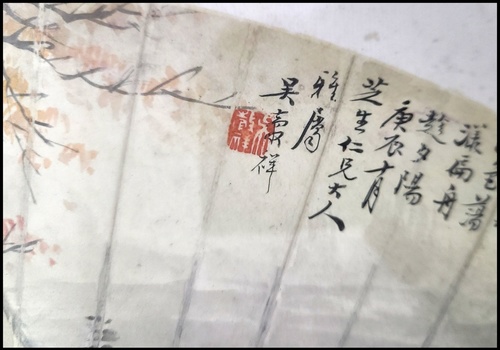 漾扁舟
趁夕陽
庚辰十月
芝生仁兄大人
雅屬
吳祥